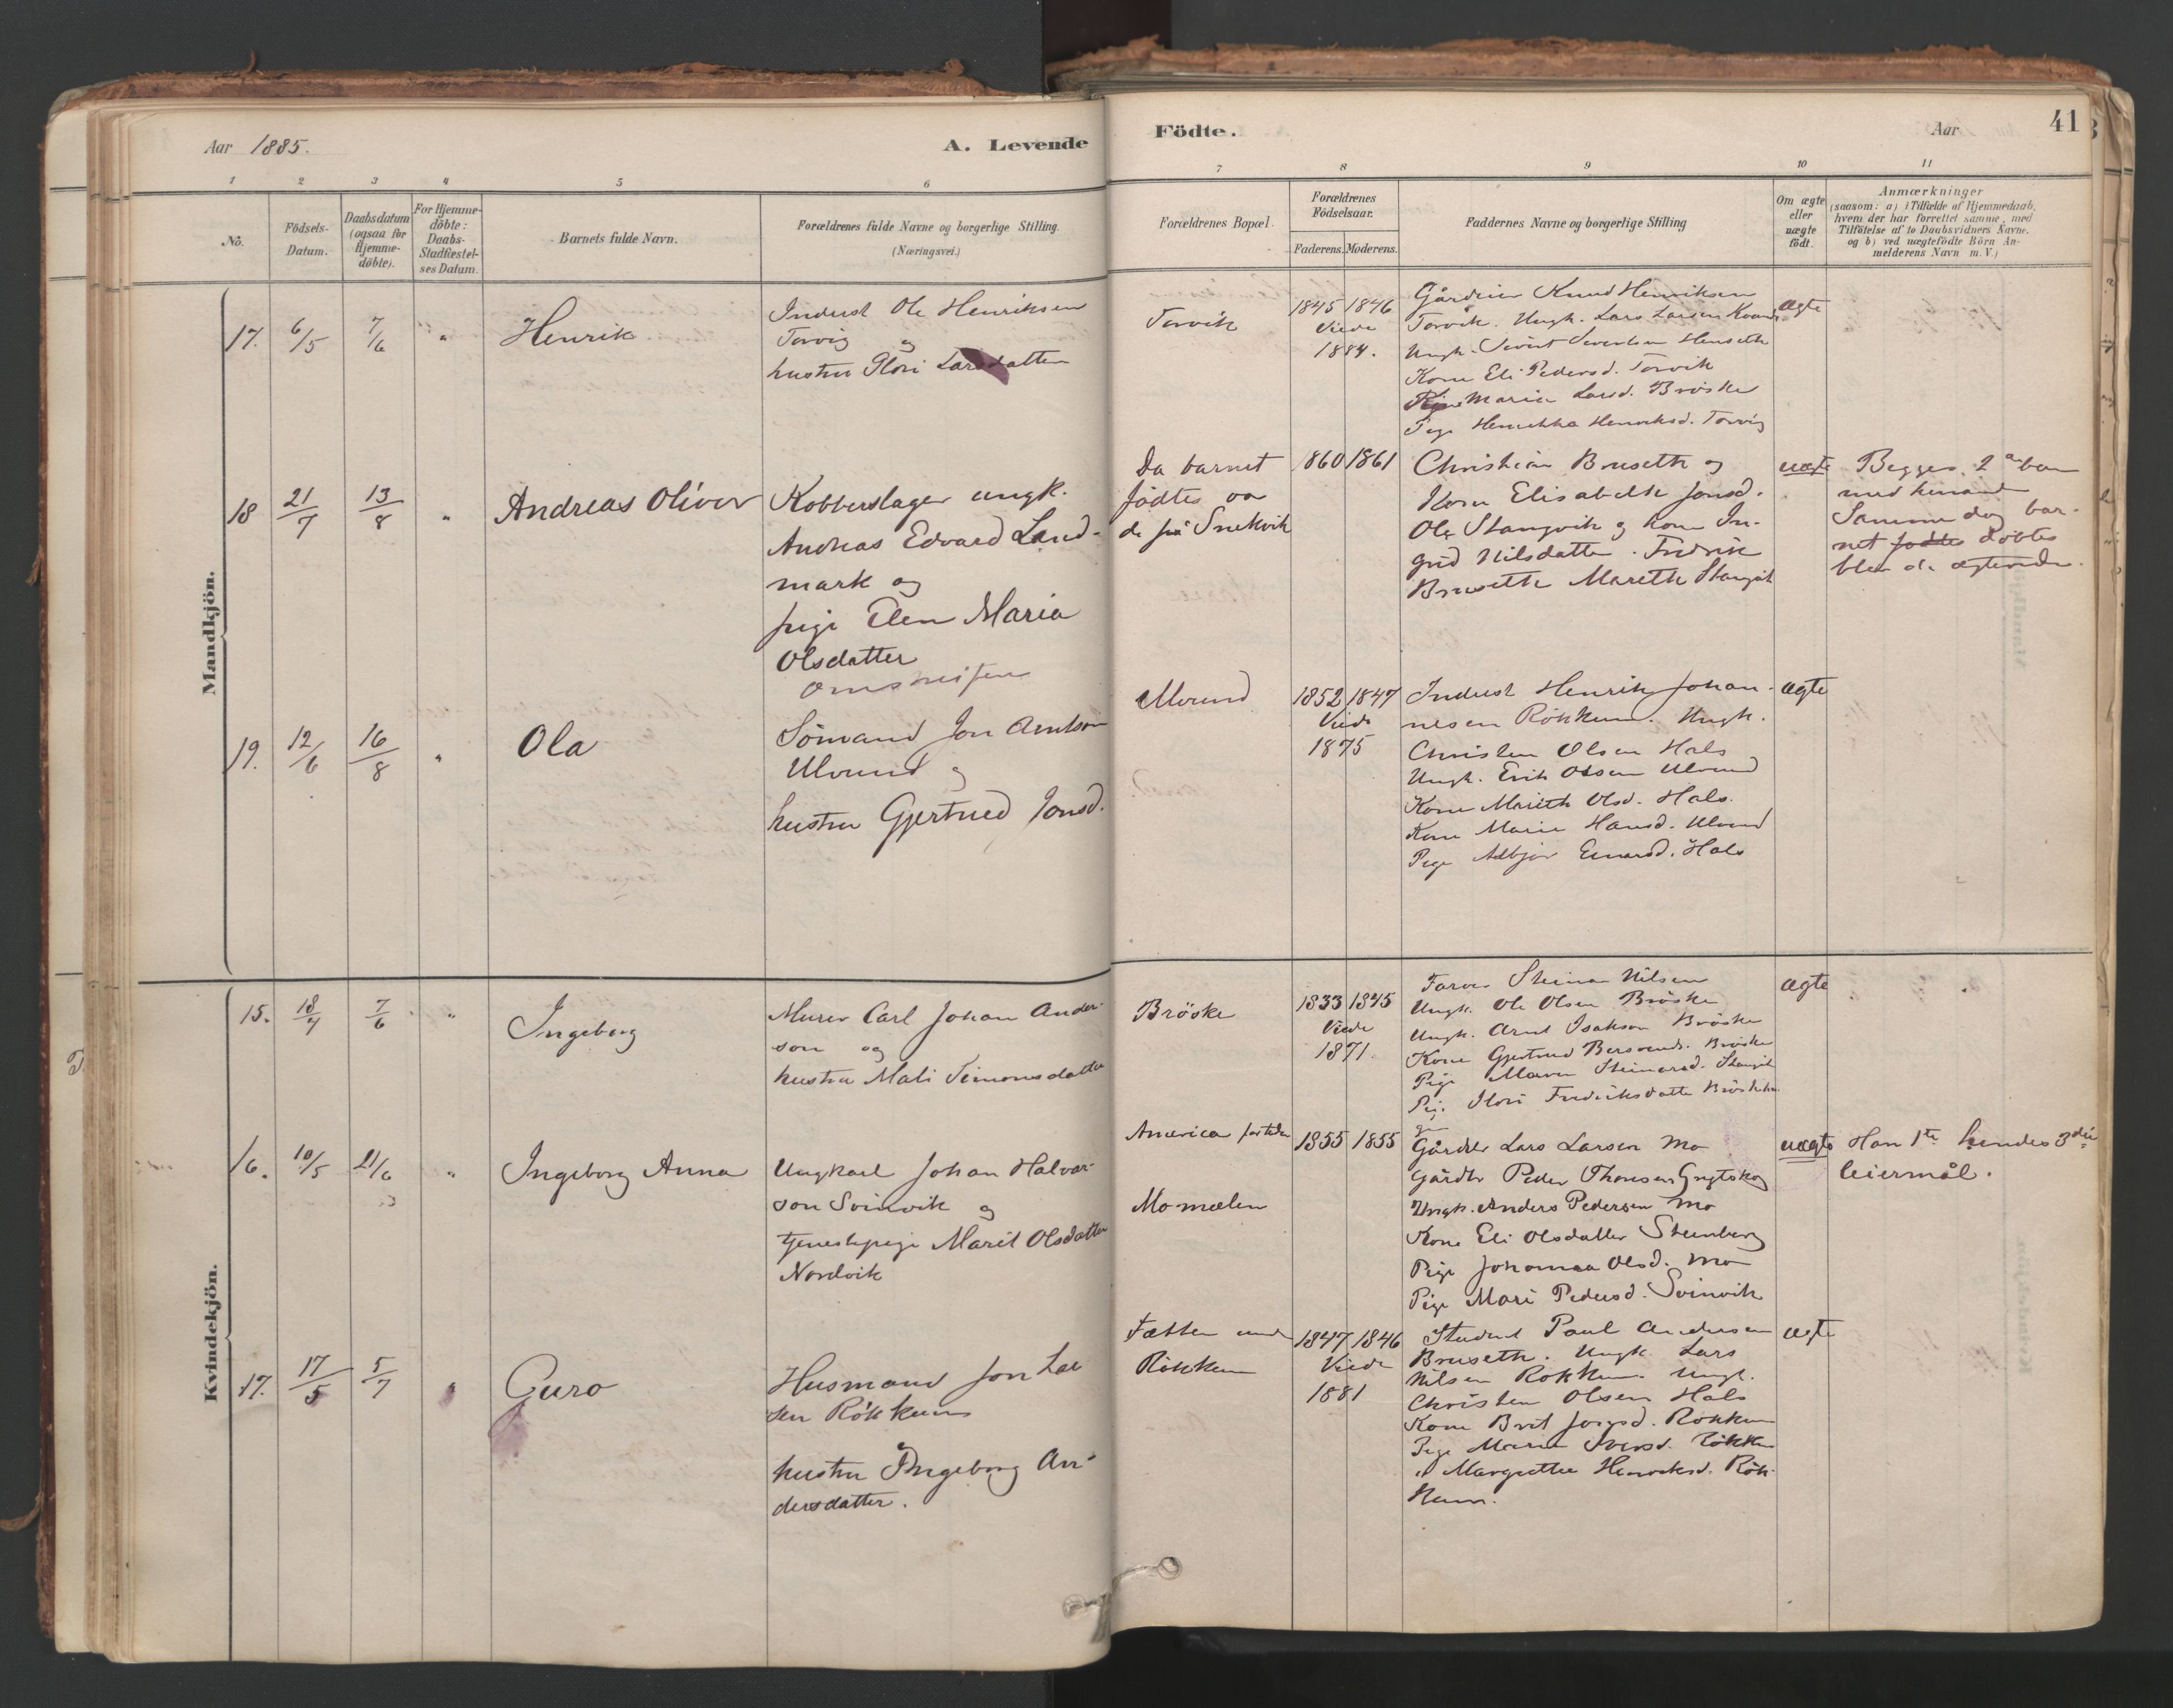 Aar 1885.
A. Levende
1 2 3 4 5 6
No.
Födsels-
Datum.
Daabsdatum
(ogsaa for
Hjemme-
döbte).
For Hjemme-
döbte:
Daabs-
Stadfæstel-
ses Datum.
Barnets fulde Navn.
Forældrenes fulde Navne og borgerlige Stilling.
(Næringsvei.)
Födte.
Aar
41
7 8 9 10 11
Forældrenes Bopæl.
Forældrenes
Födselsaar.
Faderens. Moderens.
Faddernes Navne og borgerlige Stilling
Om ægte
eller
uægte
födt.
Anmærkninger
(saasom: a) i Tilfælde af Hjemmedaab,
hvem der har forrettet samme, med
Tilföielse af to Daabsvidners Navne.
og b) ved uægtefödte Börn An-
melderens Navn m. V.)
Mandkjön.
17. 6/5 7/6 " Henrik
Inderst Ole Henriksen
Torvig og
hustru Larsdatter
Torvik
1845 1846
Viede
1884.
Gårdbr Knud Henriksen
Torvik. Ungk. Lars Larsen
Ungk. Sivert Sivertsen Henseth
Kone Eli Pedersd. Torvik
Maria Larsd. Bröske
Pige Henrikka Henriksd. Torvig
ægte
18 21/7 13/8 " Andreas Oliver
Kobberslager ungk.
Andreas Edvard Land-
mark og
pige Elen Maria
Olsdatter
Da barnet
födtes var
de på Snekvik
1860 1861
Christian Bruseth og
Kone Elisabeth Jonsd.
Ole Stangvik og kone In-
grid Nilsdatter. Fredrik
Bruseth Mareth Stangvik
uægte
Begges 2 barn
med hinanden
Samme dag bar-
net födtes döbtes
blev de ægteviede.
19. 12/6 16/8 " Ola
Sömand Jon Arntsen
Ulvund og
hustru Gjertrued Jonsd.
Ulvund
1852 1847
Viede
1875
Inderst Henrik Johan-
nesen Rökkum. Ungk.
Christen Olsen Hals
Ungk. Erik Olsen Ulvund
Kone Mareth Olsd. Hals.
Kone Marie Hansd. Ulvund
Pige Asbjör Einarsd. Hals
ægte
Kvindekjön.
15. 18/4 7/6 " Ingeborg
Murer Carl Johan Ander-
son og
hustru Mali Simonsdatter
Bröske
1833 1845
Viede
1871.
Farver Steinar Nilsen
Ungk. Ole Olsen Bröske
Ungk. Arnt Isaksen Bröske
Kone Gjertrud Bröske
Pige Maren Steinarsd. Stangvik
Pige Fredriksdatter
ægte
16. 10/5 21/6 " Ingeborg Anna
Ungkarl Johan Halvor-
son Svinvik og
tjenestepige Marit Olsdatter
Nordvik
America
Momælen
1855 1855
Gårdbr Lars Larsen Mo
Gårdbr Peder Thoresen
Ungk. Anders Pedersen Mo
Kone Eli Olsdatter Steinberg
Pige Johanna Olsd. Mo
Pige Mari Pedersd. Svinvik
uægte
Han 1te hendes 3die
leiermål.
17. 17/5 5/7 " Guro
Husmand Jon Lar-
sen Rökkum
hustru Ingeborg An-
dersdatter.
Fætten under
Rökkum
1847 1846
Viede
1881
Student Paul Andersen
Bruseth. Ungk. Lars
Nilsen Rökkum. Ungk.
Christen Olsen Hals
Kone Brit Rökkum
Pige Marie Iversd. Rökkum
" Margrethe Henriksd. Rök-
kum.
ægte